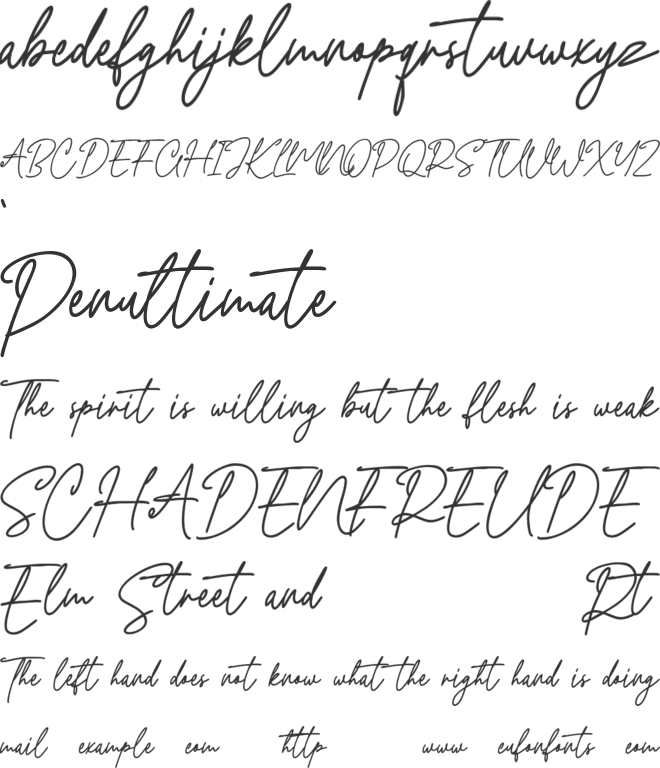 abcdefghijklmnopqrstuvwxyz
ABCDEFGHIJKLMNOPQRSTUVWXYZ
`
Penultimate
The spirit is willing but the flesh is weak
SCHADENFREUDE
Elm Street and Rt
The left hand does not know what the right hand is doing
mail example com http www eufonfonts com